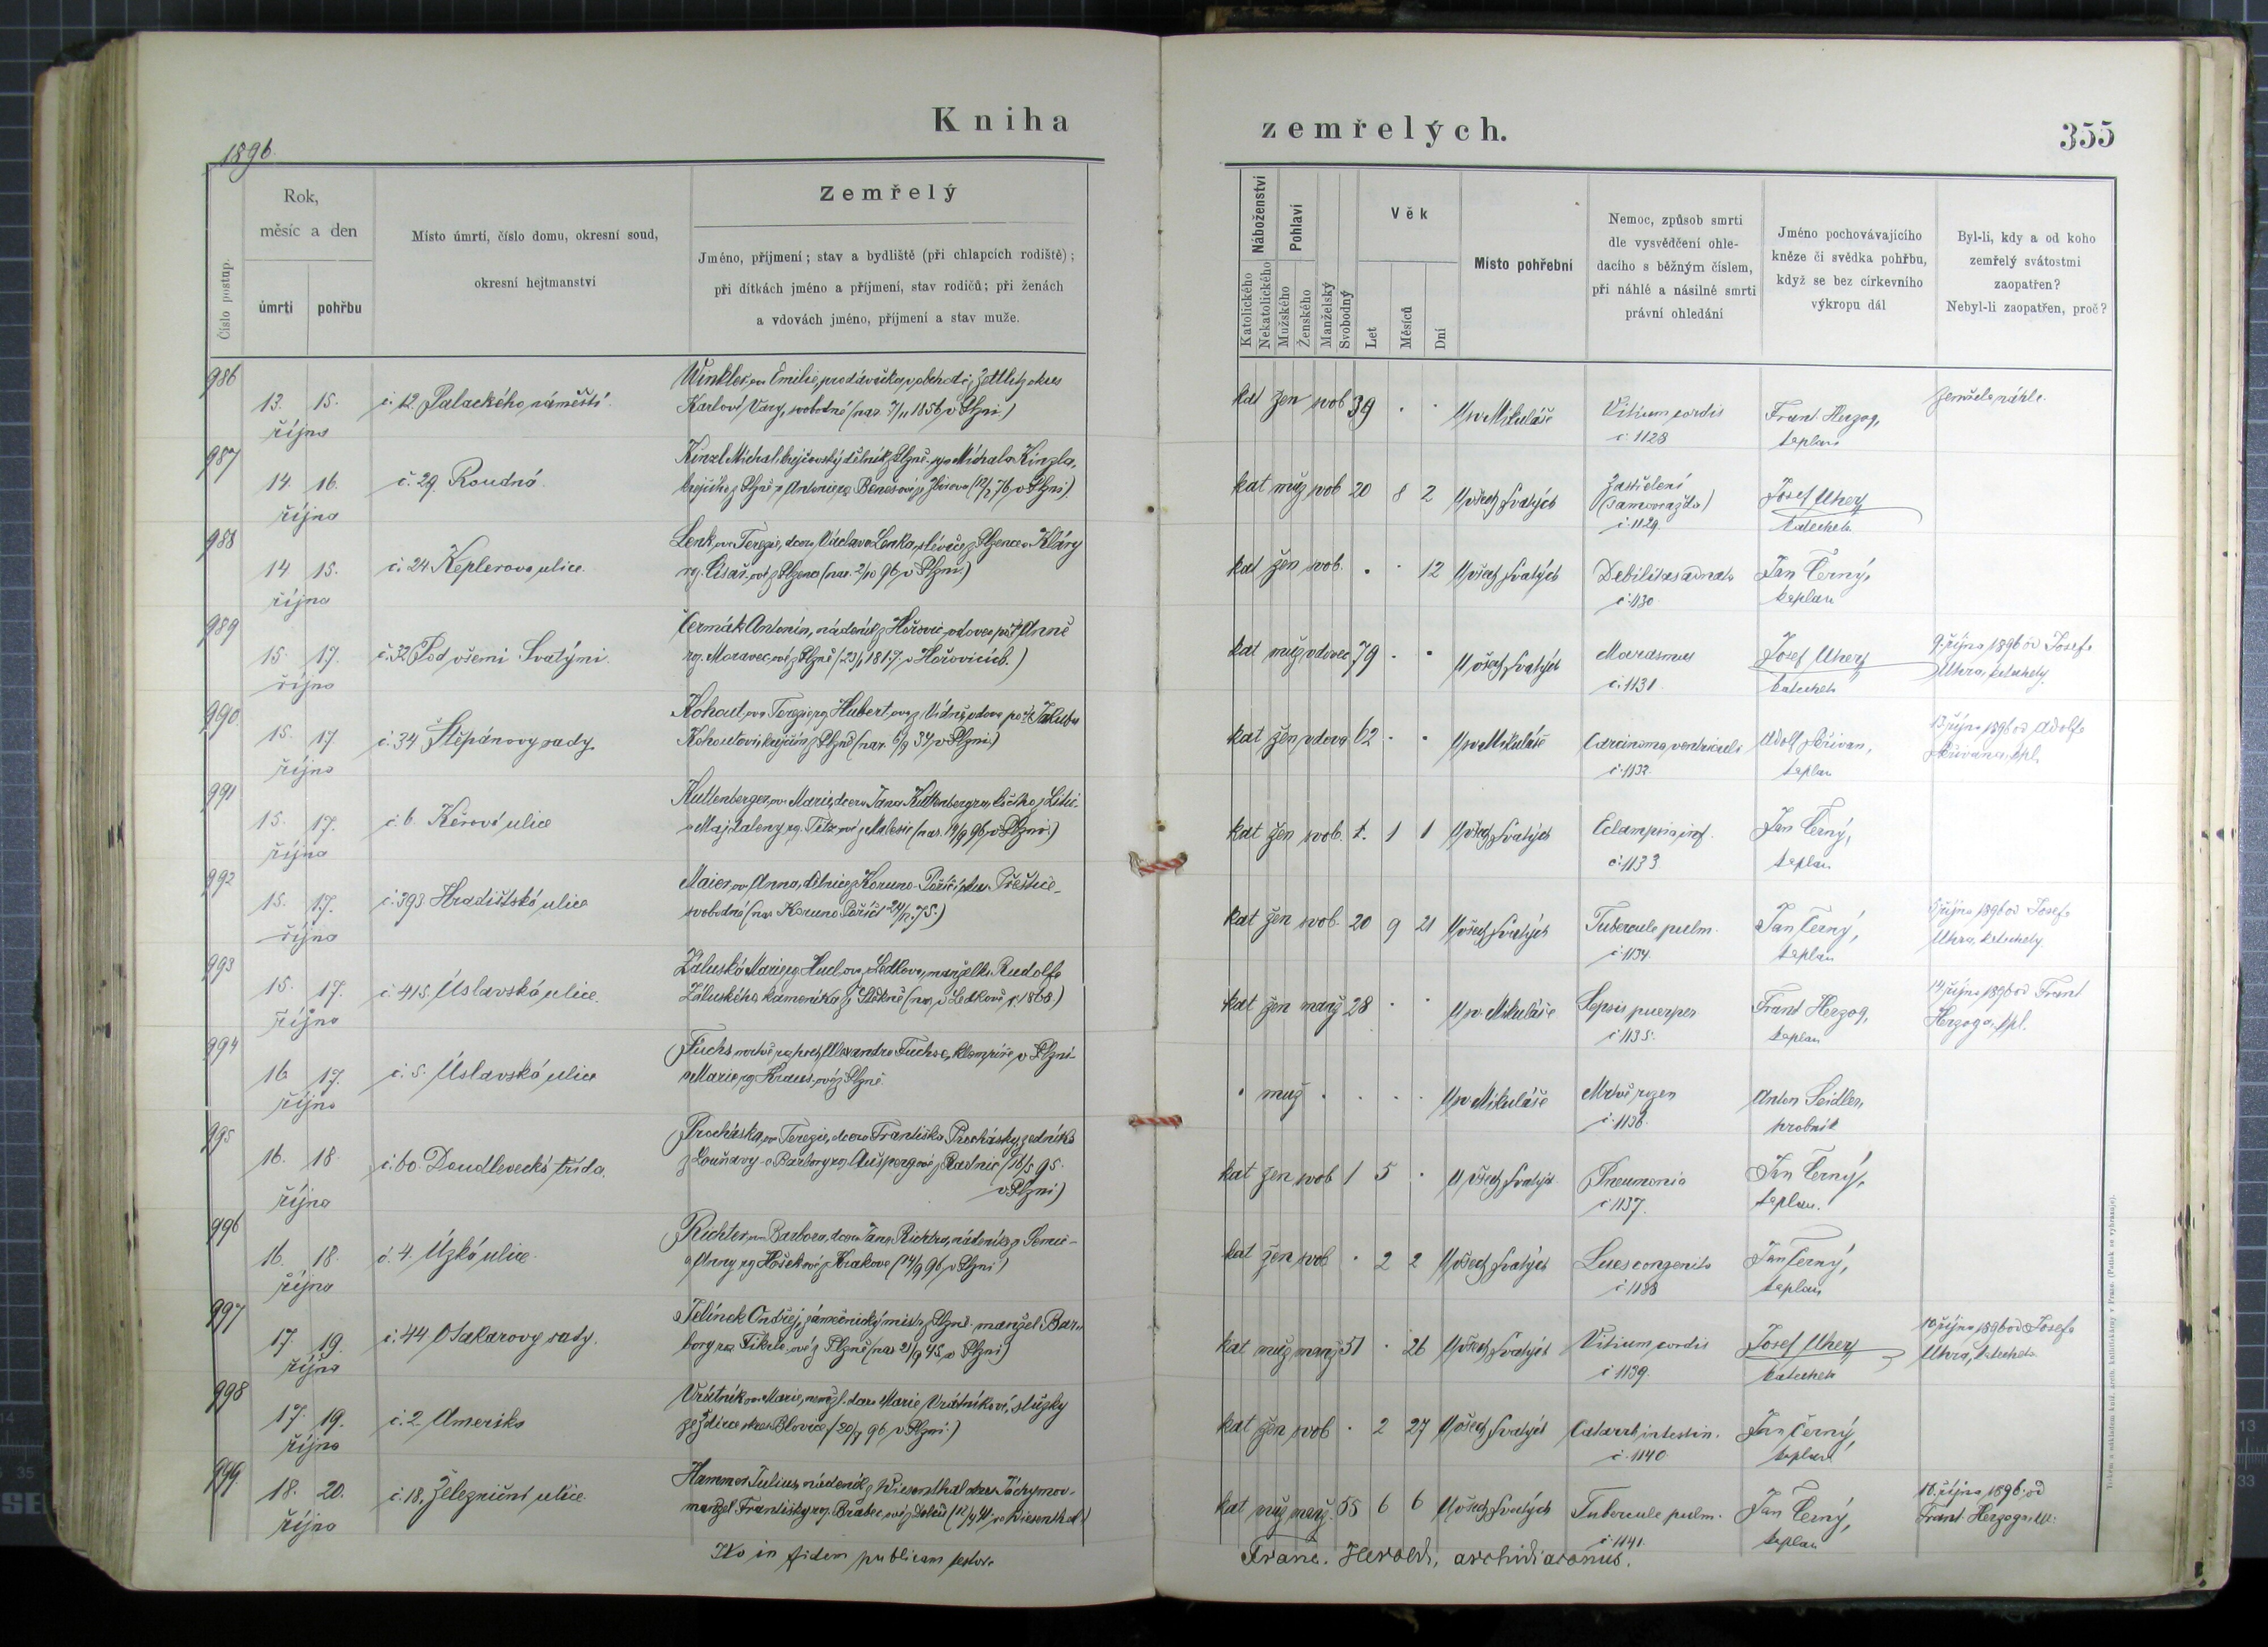 Kniha zemřelých.
355
1896.
Číslo postup.
Rok,
měsíc a den
úmrtí
pohřbu
Místo úmrtí, číslo domu, okresní soud,
okresní hejtmanství
Zemřelý
Jméno, příjmení; stav a bydliště (při chlapcích rodiště);
při dítkách jméno a příjmení, stav rodičů; při ženách
a vdovách jméno, příjmení a stav muže.
Náboženství
Katolického
Nekatolického
Pohlaví
Mužského
Ženského
Manželský
Svobodný
Věk
Let
Měsíců
Dní
Místo pohřební
Nemoc, způsob smrti
dle vysvědčení ohle-
dacího s běžným číslem,
při náhlé a násilné smrti
právní ohledání
Jméno pochovávajícího
kněze či svědka pohřbu,
když se bez církevního
výkropu dál
Byl-li, kdy a od koho
zemřelý svátostmi
zaopatřen?
Nebyl-li zaopatřen, proč?
986
13. 15.
října
č. 12. Palackého náměstí.
Winkler, ova Emilie, prodavačka
Karlovy Vary, svobodná (nar. 7/11 1856 v Plzni)
kat žen svob 39 . . U sv. Mikuláše
Vitium cordis
č. 1128
Frant. Herzog,
kaplan
zemřela náhle.
987
14. 16.
října
č. 29. Roudná
Kinzel Michal, krejčovský dělník z Plzně, syn Michala Kinzla,
krejčího z Plzně a Antonie roz. Benešové z Zbirova (12/2 76 v Plzni)
kat muž svob 20 8 2 U všech Svatých
Zastřelení
(samovražda)
č. 1129.
Josef Uher
katecheta
988
14 15.
října
č. 24 Keplerova ulice.
Lenk, ova Terezie, dcera Václava Lenka, slévače z Plzence a Kláry
rz. Císař, ové z Plzence (nar. 2/10 96 v Plzni.)
kat žen svob. . . 12 U všech Svatých
Debilitas adnata
č. 1130.
Jan Černý,
kaplan
989
15. 17.
října
č. 32 Pod všemi Svatými.
Čermák Antonín, nádeník z Hořovic, vdovec po † Anně
rz. Moravec, ové z Plzně (23/1 1817. v Hořovicích.)
kat muž vdovec 79 . . U všech Svatých
Marasmus
č. 1131.
Josef Uher
katecheta
9. října 1896 od Josefa
Uhra, katechety.
990
15. 17
října
č. 34 Štěpánovy sady.
Kohout, ova Terezie rz. Hubert, ova z Vídně, vdova po † Jakubu
Kohoutovi, krejčím z Plzně (nar. 6/9 34 v Plzni.)
kat žen vdova 62 . . U sv. Mikuláše
Carcinoma ventriculi
č. 1132.
Adolf Skřivan,
kaplan
13. října 1896 od Adolfa
Skřivana, kpl.
991
15. 17.
října
č. 6. Kérova ulice
Kuttenberger, ova Marie, dcera Jana Kuttenbergra,
a Majdaleny rz. Tetz, ové z Malesic (nar. 14/9 96 v Plzni.)
kat žen svob. 1. 1 1 U všech Svatých
Eclampsia inf.
č. 1133
Jan Černý,
kaplan
992
15. 17.
října
č. 393 Hradišťská ulice
Maier, ova Anna, dělnice z Koruna-Poříčí, okr. Přeštice
svobodná
kat žen svob. 20 9 21 U všech Svatých
Tubercule pulm.
č. 1134.
Jan Černý,
kaplan
října 1896 od Josefa
Uhra, katechety.
993
15. 17.
října
č. 415. Úslavská ulice.
Záluská Marie rz. Hucl, ova z Ledkova, manželka Rudolfa
Záluského kameníka
kat žen manž 28 . . U sv. Mikuláše
Sepsis puerper.
č. 1135.
Frant Herzog,
kaplan
14. října 1896 od Frant
Herzoga, kpl.
994
16. 17.
října
č. 5. Úslavská ulice
Fuchs, mrtvě roz. hoch Alexandra Fuchse, klempíře v Plzni
a Marie rz. Kraus, ové z Plzně.
. muž . . . . U sv. Mikuláše
Mrtvě rozen
č. 1136.
Anton Seidler,
hrobník
995
16. 18.
října
č. 60. Doudlevecká třída.
Procházka, ova Terezie, dcera Františka Procházky, zedníka
a Barbory rz. Auspergové z Radnic (16/5 95.
v Plzni)
kat žen svob 1 5 . U všech Svatých
Pneumonia
č. 1137.
Jan Černý,
kaplan.
996
16. 18.
října
č. 4. Úzká ulice.
Richter, ova Barbora, dcera Jana Richtra, nádeníka
a Anny rz. Hošekové z Krakova (14/8 96 v Plzni)
kat žen svob . 2 2 U všech Svatých
Lues congenita
č. 1138
Jan Černý,
kaplan
997
17. 19.
října
č. 44 Otakarovy sady.
Jelínek Ondřej, zámečnický mistr z Plzně, manžel Bar-
bory roz. Fikrle, ové z Plzně (nar. 21/9 45. v Plzni)
kat muž manž 51 . 26 U všech Svatých
Vitium cordis
č. 1139.
Josef Uher
katecheta
10. října 1896 od Josefa
Uhra, katecheta
998
17. 19.
října
č. 2. Amerika
Vrátník, ova Marie, nemanž. dcera Marie Vrátníkové, služky
ze Ždirce okres Blovice (20/7 96 v Plzni.)
kat žen svob . 2 27 U všech Svatých
Catarrh. intestin.
č. 1140
Jan Černý,
kaplan
999
18. 20.
října
č. 18. Železniční ulice.
Hammer Julius, nádeník z Wiesenthal okres Jáchymov
manžel Františky rz. Brabec, ové (12/4 41 ve Wiesenthal)
kat muž manž. 55 6 6 U všech Svatých
Tubercule pulm.
č. 1141.
Jan Černý,
kaplan
10. října 1896. od
Frant. Herzoga,
Ita in fidem publicam testor
Franc. Herold, archidiaconus.